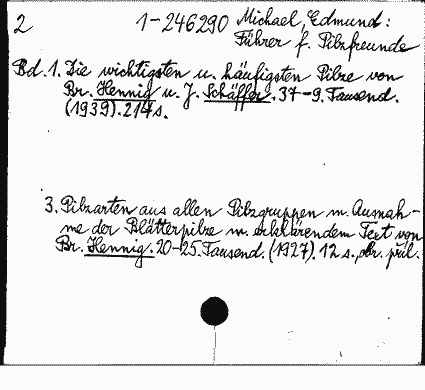 2 1-246290 Michael, Edmund:
Führer f. Pilzfreunde
Bd. 1. Die wichtigsten u. häufigsten Pilze von
Br. Hennig u. J. Schäffer. 37-9. Tausend.
(1939). 214 s.
3. Pilzarten aus allen Pilzgruppen m. Ausnah-
me der Blätterpilze m. erklärendem Text von
Br. Hennig. 20-25. Tausend. (1927). 12 s., obr. příl.